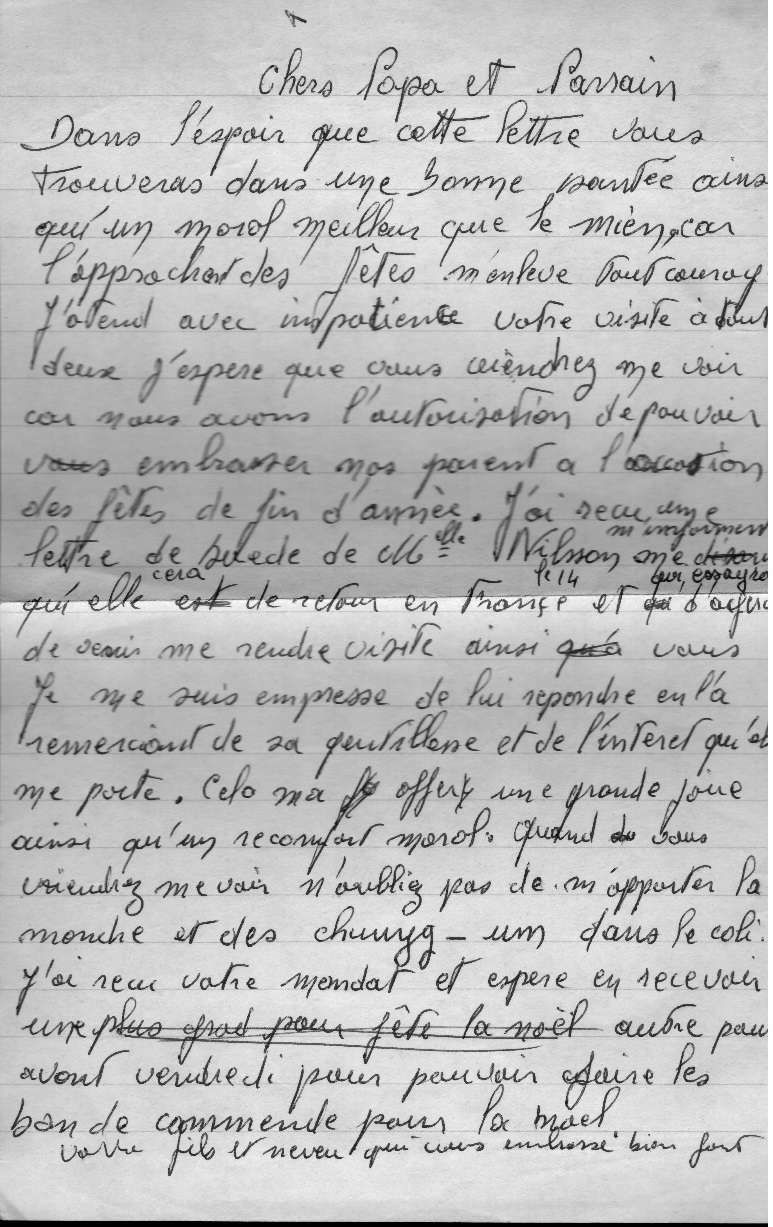 1
Chers Papa et Parrain
Dans l'éspoir que cette lettre vous
trouveras dans une bonne santée ains
qu'un moral meilleur que le mien, car
l'approchant des fêtes m'enleve tout couray
J'atend avec impatience votre visite à tout
deux j'espere que vous viendrez me voir
car nous avons l'autorisation de pouvoir
vous embrasser nos parent a l'occation
des fêtes de fin d'année. J'ai recu une
m'informent
lettre de suede de Melle Nilsson me
cera le 14 qui essayra
qu'elle est de retour en France et
de venir me rendre visite ainsi qu'a vous
Je me suis empresse de lui repondre en l'a
remerciant de sa gentillesse et de l'interet qu'el
me porte. Cela ma offert une grande joie
ainsi qu'un reconfort moral. Quand vous
viendrez me voir n'oubliez pas de m'apporter la
montre et des chuwyg-um dans le coli.
J'ai recu votre mandat et espere en recevoir
une plus grad pour fête la noël autre pour
avant vendredi pour pouvoir faire les
bon de commende pour la noel
votre fils et neveu qui vous embrasse bien fort